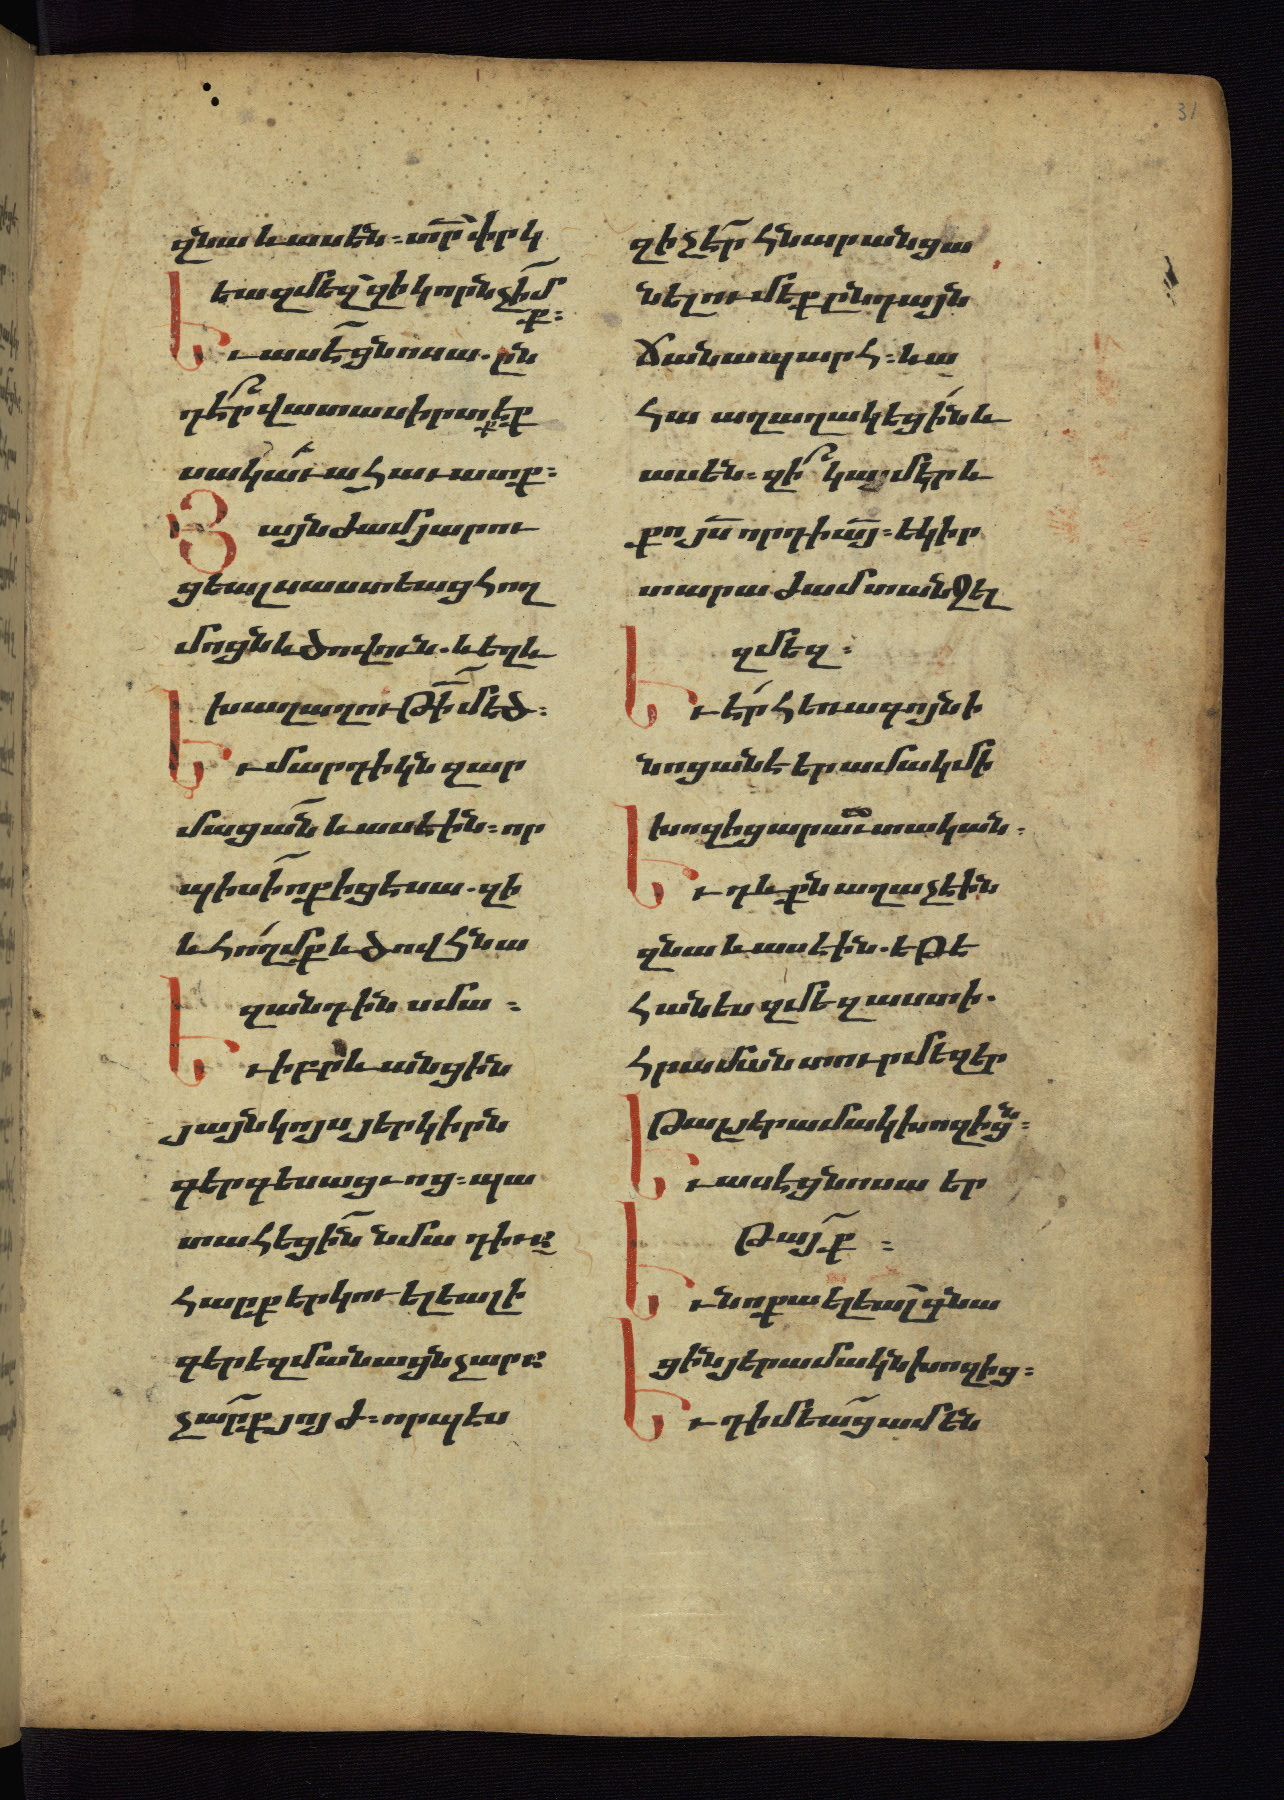 զնա և ասեն։ տր̄ փրկ
եա զմեզ զի կորնչիմ
ք։
Եւ ասէ ցնոսա. ըն
դէ՞ր վատասիրտ էք
սակաւահաւատք։
Յայնժամ յարու
ցեալ սաստեաց հող
մոցն և ծովուն. և եղև
խաղաղութի̄ մեծ։
Եւ մարդիկն զար
մացան և ասէին։ որ
պիսի ոք իցէ սա. զի
և հողմք և ծով հնա
զանդին սմա։
Եւ իբրև անցին
յայնկոյս յերկիրն
գերգեսացւոց։ պա
տահեցին նմա դիւա
հարք երկու ելեալ ի
գերեզմանացն չարա
չարք յոյժ։ որպէս
զի չէր հնար անցա
նել ումեք ընդ այն
ճանապարհ։ և ա
հա աղաղակեցին և
ասեն։ զի՞ կայ մեր և
քո յս̄ որդի այ̄։ եկիր
տարաժամ տանջել
զմեզ։
Եւ էր հեռագոյն ի
նոցանէ երամակ մի
խոզից արաւտական։
Եւ դևքն աղաչէին
զնա և ասէին. եթէ
հանես զմեզ աստի.
հրաման տուր մեզ եր
թալ յերամակ խոզիցն։
Եւ ասէ ցնոսա եր
թայք։
Եւ նոքա ելեալ գնա
ցին յերամակն խոզից։
Եւ դիմեաց ամեն
31